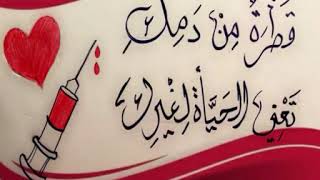 قَطْرَةٌ مِنْ دَمِكَ
تَعْنِي الْحَيَاةَ لِغَيْرِكَ